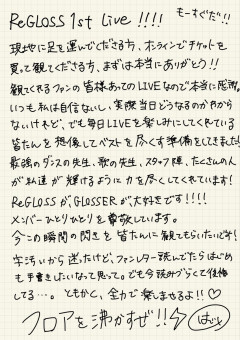 ReGLOSS 1st Live !!!! もーすぐだ!!
現地に足を運んでくださる方、オンラインでチケットを
買って観てくださる方、まずは本当にありがとう!!
観てくれるファンの皆様あってのLIVEなので本当に感謝。
いつも私は自信ないし、実際当日どうなるのか分から
ないけれど、でも毎日LIVEを楽しみにしてくれている
皆たんを想像してベストを尽くす準備をしてきました!
最強のダンスの先生、歌の先生、スタッフ陣、たくさんの人
が私達が輝けるように力を尽くしてくれています!
ReGLOSSが、GLOSSERが大好きです!!!!
メンバーひとりひとりを尊敬しています。
今この瞬間の閃きを皆たんに観てもらいたいです!
字汚いから迷ったけど、ファンレター読んでたらはじめ
も手書きしたいなって思って。でも今読みづらくて後悔
してる…。ともかく、全力で楽しませるよ!!♡
フロアを沸かすぜ!! はじめ